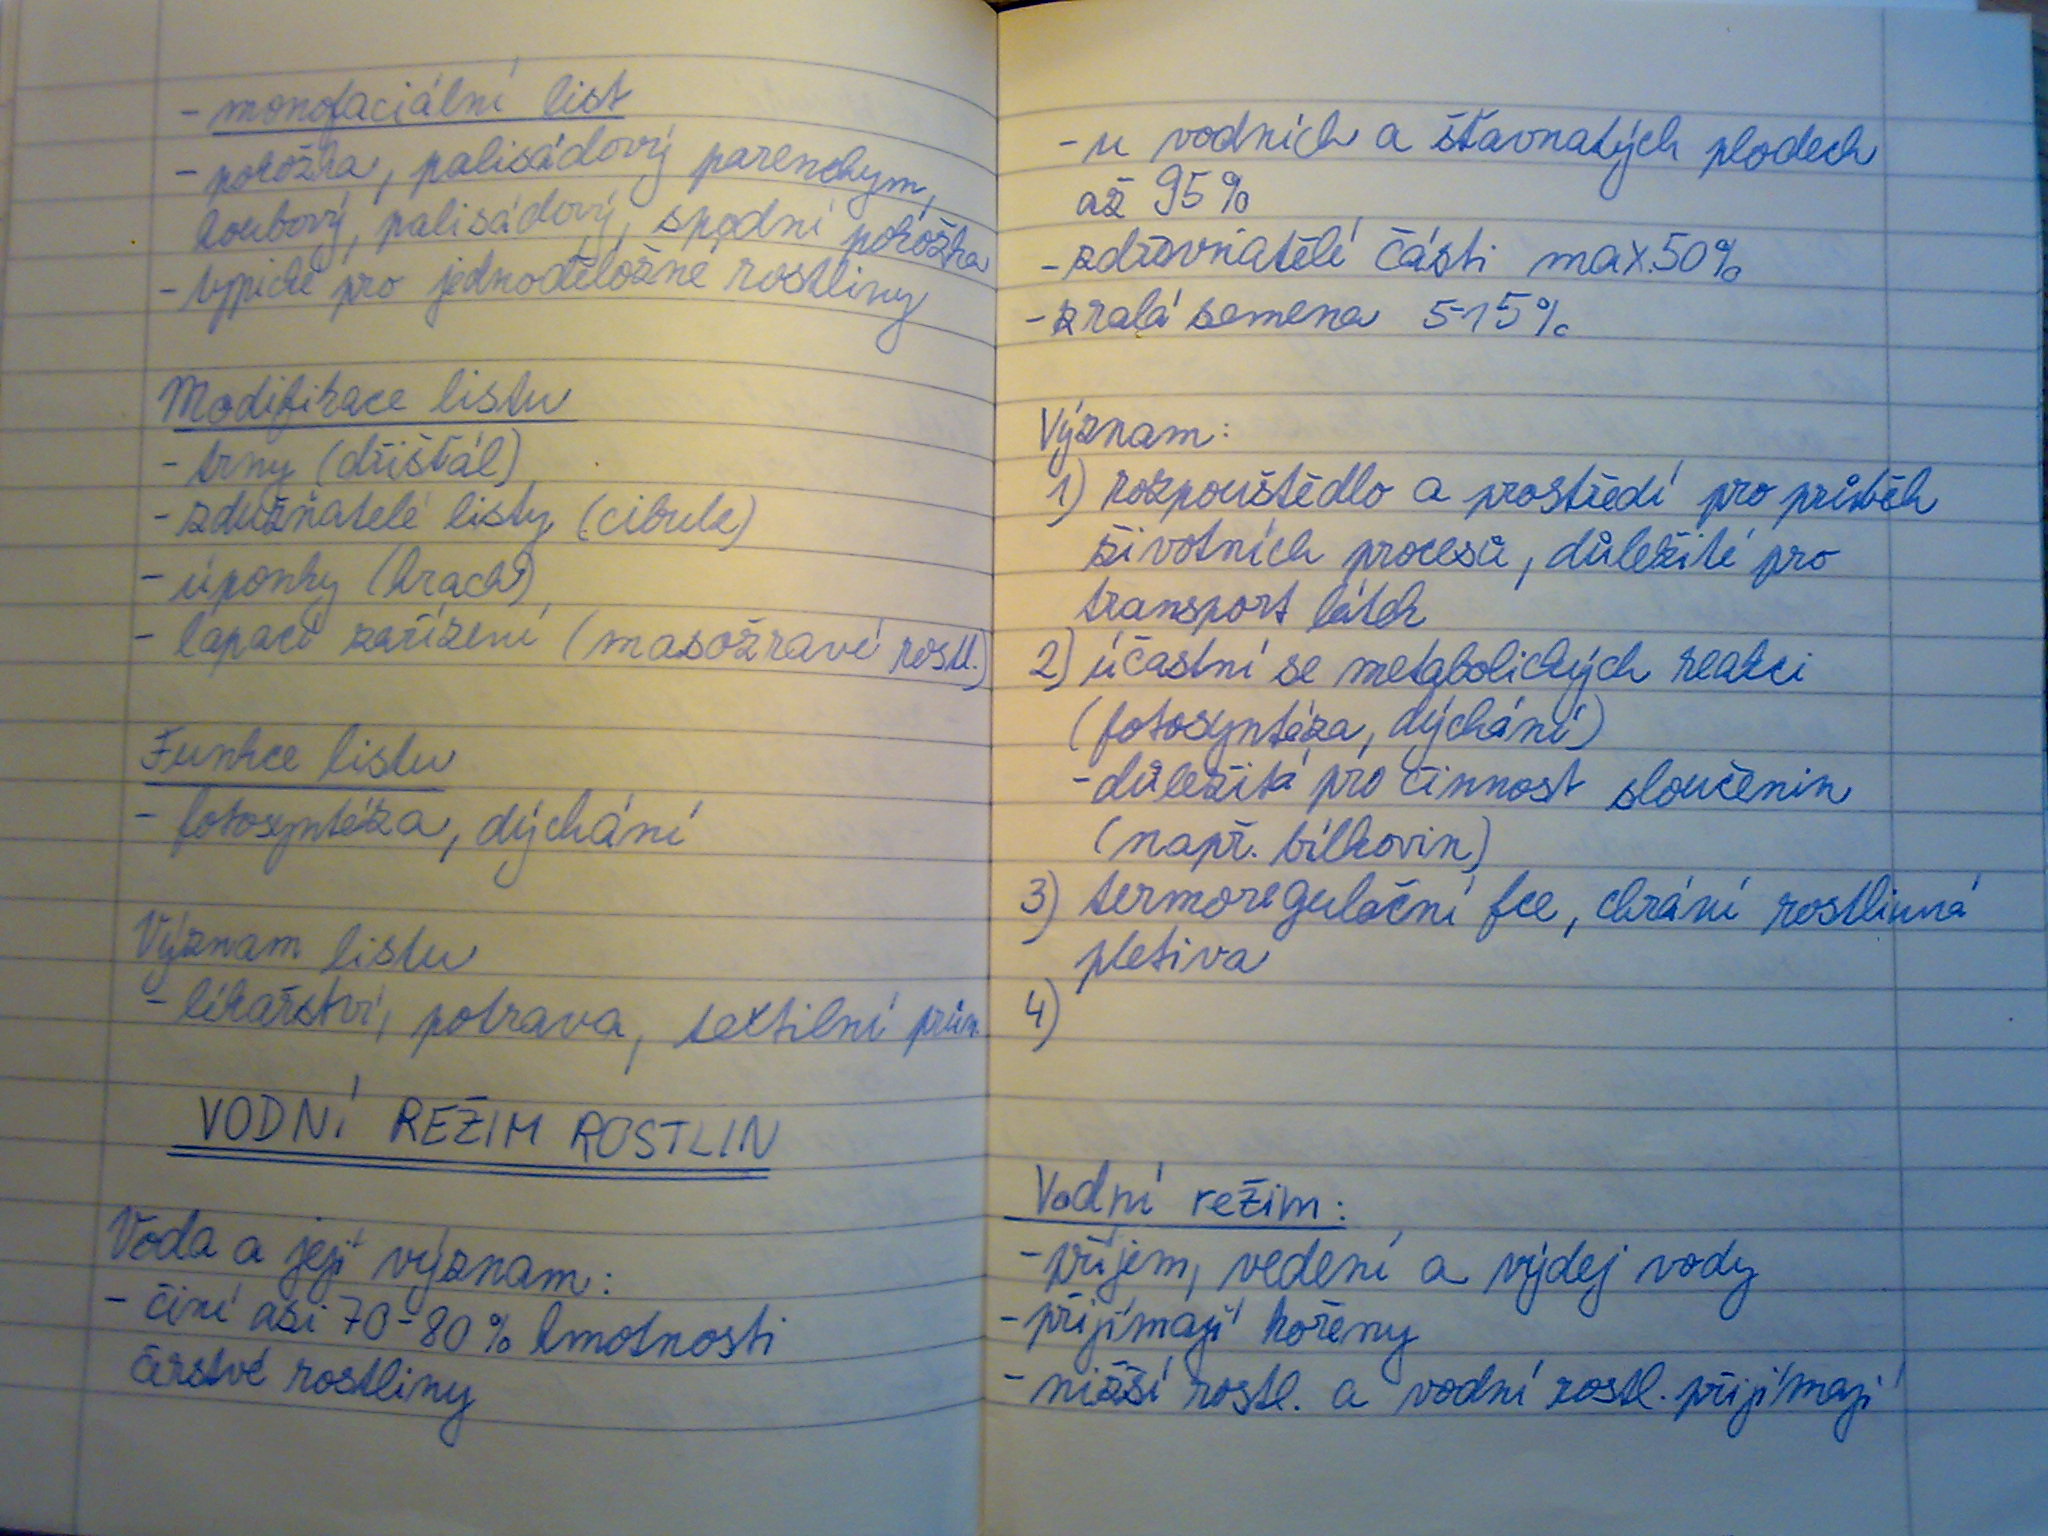 - monofaciální list
- pokožka, palisádový parenchym,
houbový, palisádový, spodní pokožka
- typické pro jednoděložné rostliny
Modifikace listu
- trny (dřišťál)
- zdužňatělé listy (cibule)
- úponky (hrách)
- lapací zařízení (masožravé rostl.)
Funkce listu
- fotosyntéza, dýchání
Význam listu
- lékařství, potrava, textilní prům
VODNÍ REŽIM ROSTLIN
Voda a její význam:
- činí asi 70-80% hmotnosti
čerstvé rostliny
- u vodních a šťavnatých plodech
až 95%
- zdřevnatělé části max.50%
- zralá semena 5-15%
Význam:
1) rozpouštědlo a prostředí pro průběh
životních procesů, důležité pro
transport látek
2) účastní se metabolických reakcí
(fotosyntéza, dýchání)
- důležitá pro činnost sloučenin
(např. bílkovin)
3) termoregulační fce, chrání rostlinná
pletiva
4)
Vodní režim:
- příjem, vedení a výdej vody
- přijímají kořeny
- nižší rostl. a vodní rostl. přijímají